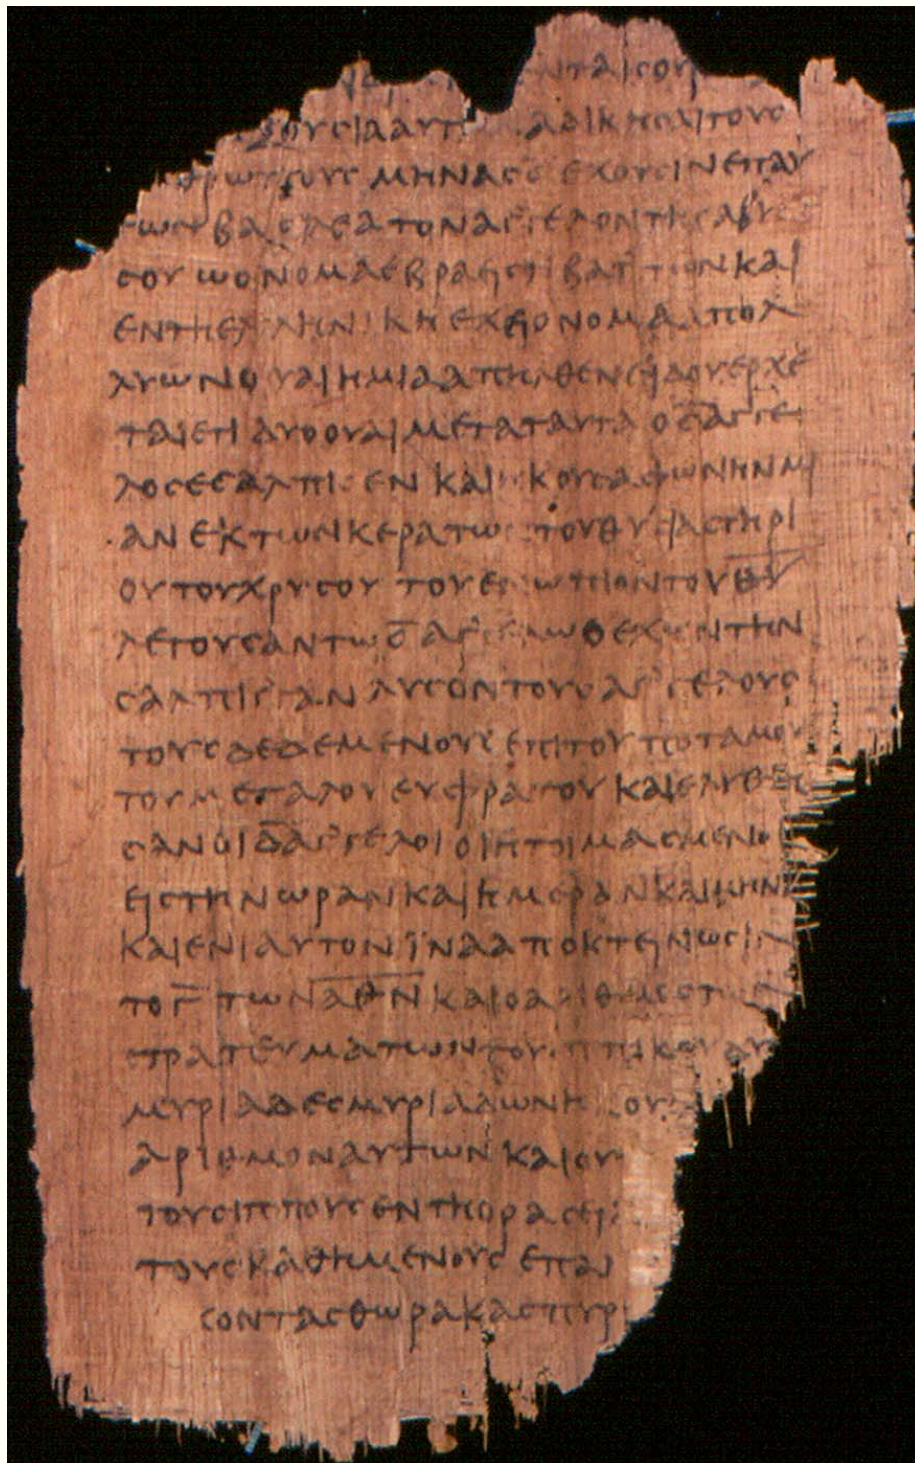 ΝΤΑΙ ΣΟΥ
ΞΟΥΣΙΑ ΑΥΤ ΑΔΙΚΗΣΑΙ ΤΟΥΣ
ΜΗΝΑΣ Ε ΕΧΟΥΣΙΝ ΕΠ ΑΥ
ΒΑΣΙΛΕΑ ΤΟΝ ΑΓΓΕΛΟΝ ΤΗΣ ΑΒΥΣ
ΣΟΥ Ω ΟΝΟΜΑ ΕΒΡΑΕΙΣΤΙ ΚΑΙ
ΕΝ ΤΗ ΕΛΛΗΝΙΚΗ ΕΧΕΙ ΟΝΟΜΑ ΑΠΟΛ
ΛΥΩΝ ΟΥΑΙ Η ΜΙΑ ΑΠΗΛΘΕΝ ΕΙΔΟΥ ΕΡΧΕ
ΤΑΙ ΕΤΙ ΔΥΟ ΟΥΑΙ ΜΕΤΑ ΤΑΥΤΑ Ο Ϛ̅ ΑΓΓΕ
ΛΟΣ ΕΣΑΛΠΙΣΕΝ ΚΑΙ ΗΚΟΥΣΑ ΦΩΝΗΝ ΜΙ
ΑΝ ΕΚ ΤΩΝ ΚΕΡΑΤΩΝ ΤΟΥ ΘΥΣΙΑΣΤΗΡΙ
ΟΥ ΤΟΥ ΧΡΥΣΟΥ ΤΟΥ ΕΝΩΠΙΟΝ ΤΟΥ Θ̅Υ̅
ΛΕΓΟΥΣΑΝ ΤΩ Ϛ̅ ΑΓΓΕΛΩ Ο ΕΧΩΝ ΤΗΝ
ΣΑΛΠΙΓΓΑΝ ΛΥΣΟΝ ΤΟΥΣ ΑΓΓΕΛΟΥΣ
ΤΟΥΣ ΔΕΔΕΜΕΝΟΥΣ ΕΠΙ ΤΟΥ ΠΟΤΑΜΟΥ
ΤΟΥ ΜΕΓΑΛΟΥ ΕΥΦΡΑΤΟΥ ΚΑΙ ΕΛΥΘΗ
ΣΑΝ ΟΙ Δ̅ ΑΓΓΕΛΟΙ ΟΙ ΗΤΟΙΜΑΣΜΕΝΟΙ
ΕΙΣ ΤΗΝ ΩΡΑΝ ΚΑΙ ΗΜΕΡΑΝ ΚΑΙ ΜΗΝΑ
ΚΑΙ ΕΝΙΑΥΤΟΝ ΪΝΑ ΑΠΟΚΤΕΙΝΩΣΙΝ
ΤΟ Γ̅ ΤΩΝ Α̅Θ̅Ν̅ ΚΑΙ Ο ΑΡΙΘΜΟΣ ΤΩΝ
ΣΤΡΑΤΕΥΜΑΤΩΝ ΤΟΥ ΙΠΠΙΚΟΥ ΔΥΟ
ΜΥΡΙΑΔΕΣ ΜΥΡΙΑΔΩΝ ΗΚΟΥΣΑ
ΑΡΙΘΜΟΝ ΑΥΤΩΝ ΚΑΙ ΟΥ
ΤΟΥΣ ΙΠΠΟΥΣ ΕΝ ΤΗ ΟΡΑΣΕΙ
ΤΟΥΣ ΚΑΘΗΜΕΝΟΥΣ ΕΠ ΑΥ
ΘΩΡΑΚΑΣ ΠΥΡ